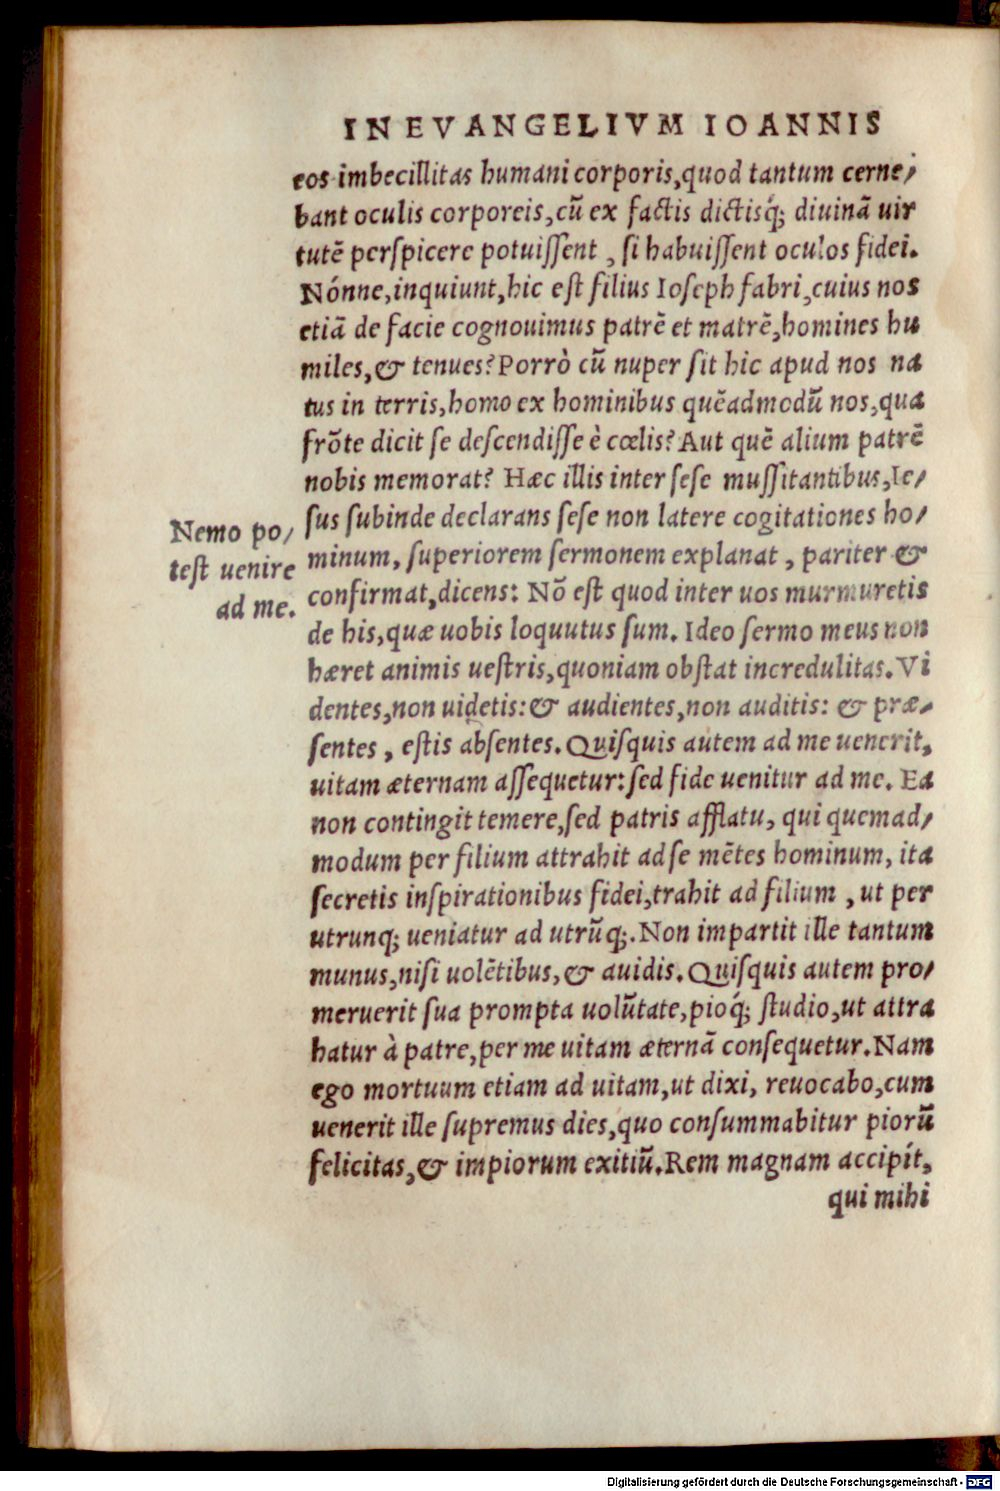 IN EVANGELIVM IOANNIS
eos imbecillitas humani corporis,quod tantum cerne/
bant oculis corporeis,cũ ex factis dictisq́; diuinã uir
tutẽ perspicere potuissent , si habuissent oculos fidei.
Nónne,inquiunt,hic est filius Ioseph fabri,cuius nos
etiã de facie cognouimus patrẽ et matrẽ,homines hu
miles,& tenues? Porrò cũ nuper sit hic apud nos na
tus in terris,homo ex hominibus quẽadmodũ nos,qua
frõte dicit se descendisse è cœlis? Aut quẽ alium patrẽ
nobis memorat? Hæc illis inter sese mussitantibus,Ie/
sus subinde declarans sese non latere cogitationes ho/
minum, superiorem sermonem explanat , pariter &
confirmat,dicens: Nõ est quod inter uos murmuretis
de his,quæ uobis loquutus sum. Ideo sermo meus non
hæret animis uestris,quoniam obstat incredulitas. Vi
dentes,non uidetis: & audientes,non auditis: & præ/
sentes , estis absentes. Quisquis autem ad me uenerit,
uitam æternam assequetur: sed fide uenitur ad me. Ea
non contingit temere,sed patris afflatu, qui quemad/
modum per filium attrahit ad se mẽtes hominum, ita
secretis inspirationibus fidei,trahit ad filium , ut per
utrunq; ueniatur ad utrũq;. Non impartit ille tantum
munus,nisi uolẽtibus,& auidis. Quisquis autem pro/
meruerit sua prompta uolũtate,pioq́; studio,ut attra
hatur à patre,per me uitam æternã consequetur. Nam
ego mortuum etiam ad uitam,ut dixi, reuocabo,cum
uenerit ille supremus dies,quo consummabitur piorũ
felicitas,& impiorum exitiũ. Rem magnam accipit,
qui mihi
Nemo po/
test uenire
ad me.
Digitalisierung gefördert durch die Deutsche Forschungsgemeinschaft - DFG